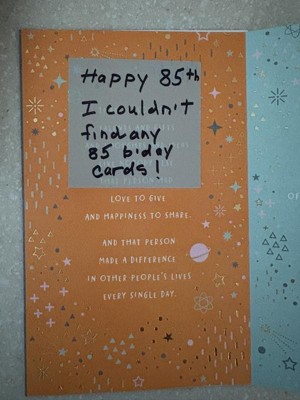 Happy 85th
I couldn't
find any
85 b'day
cards!
LOVE TO GIVE
AND HAPPINESS TO SHARE.
AND THAT PERSON
MADE A DIFFERENCE
IN OTHER PEOPLE'S LIVES
EVERY SINGLE DAY.